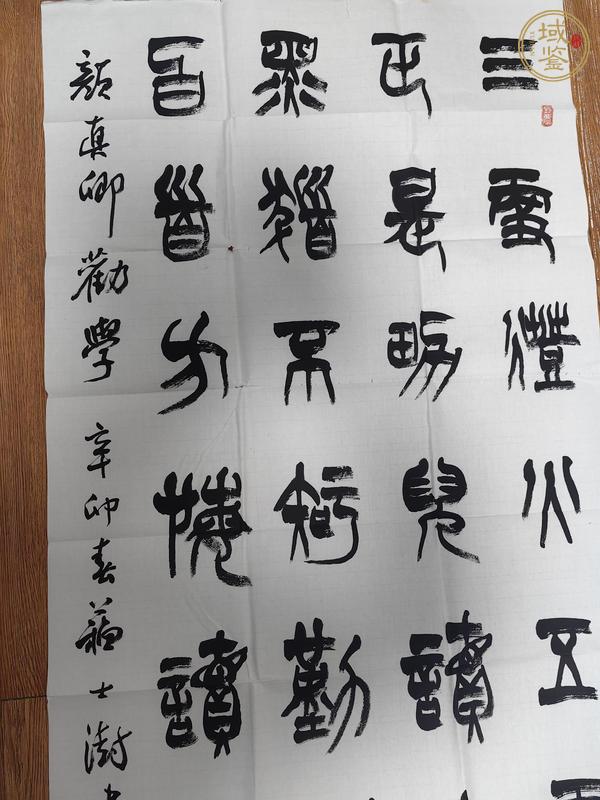 三更燈火五
正是男兒讀
黑髮不知勤
白首方悔讀
顏真卿勸學 辛卯春蘇士澍
域鑒